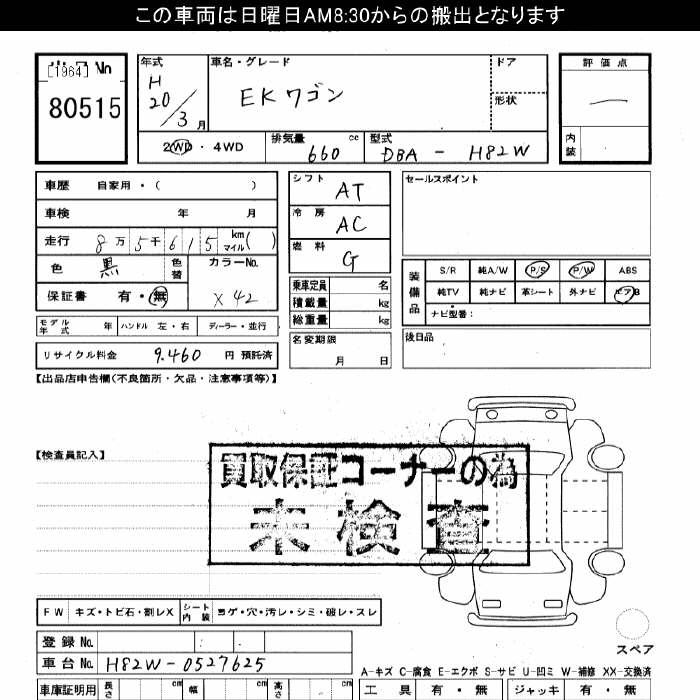 この車両は日曜日AM8:30からの搬出となります
[1964] No
80515
年式
H
20/3 月
車名・グレード
EKワゴン
ドア
形状
評価点
内装
2WD・4WD
排気量 660 cc
型式 DBA - H82W
車歴 自家用・( )
車検 年 月
走行 8万5千615 km マイル( )
色 黒 色替
カラーNo. X42
保証書 有・無
モデル年式 年 ハンドル 左・右 ディーラー・並行
リサイクル料金 9.460 円 預託済
シフト AT
冷房 AC
燃料 G
乗車定員 名
積載量 kg
総重量 kg
名変期限
月 日
セールスポイント
装備品
S/R 純A/W P/S P/W ABS
純TV 純ナビ 革シート 外ナビ エアB
ナビ型番:
後日品
【出品店申告欄(不良箇所・欠品・注意事項等)】
【検査員記入】
買取保証コーナーの為
未検査
FW キズ・トビ石・割レX シート内装 コゲ・穴・汚レ・シミ・破レ・スレ
登録No.
車台No. H82W-0527625
車庫証明用 長さ cm 幅 cm 高さ cm
スペア
A-キズ C-腐食 E-エクボ S-サビ U-凹ミ W-補修 XX-交換済
工具 有・無 ジャッキ 有・無